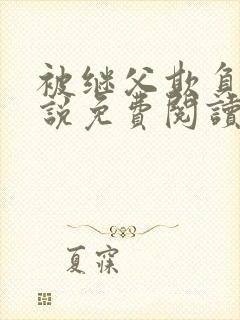 被继父欺负
說免費閱讀
夏寐